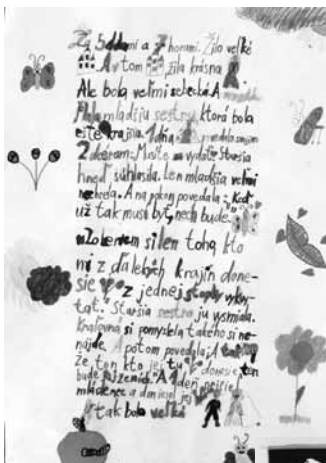 Za 5 ddami a 7 horami. Žilo veľké
A v tom žila krásna
Ale bola veľmi sebecká. A
mladšiu sestru, ktorá bola
ešte krajšia. 1 dňa povedala svojim
2 dcéram: Musíte sa vydať. Staršia
hneď súhlasila. Len mladšia veľmi
nechcela. A napokon povedala: Keď
už tak musí byť, nech bude.
za toho, kto
mi z ďalekých krajín done-
sie z jednej stopky vykry-
tať. Staršia sestra ju vysmiala.
Kráľovná si pomyslela takého si ne-
nájde. A potom povedala: A
že ten kto jej tu donesie ten
bude jej A 1 deň
mládenec a doniesol jej
tak bola veľká